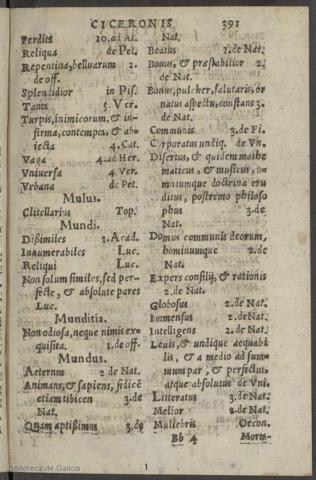 CICERONIS 391
Perdita 10. ad At.
Reliqua de Pet.
Repentina, belluarum 2.
de off.
Splendidior in Pis.
Tanta 5. Ver.
Turpis, inimicorum, & in-
firma, contempta, & ab-
iecta 4. Cat.
Vaga 4. ad Her.
Vniuersa 4. Ver.
Vrbana de Pet.
Mulus.
Clitellarius Top.
Mundi.
Dißimiles 2. Acad.
Innumerabiles Luc.
Reliqui Luc.
Non solum similes, sed per-
fecte, & absolute pares
Luc.
Munditia.
Non odiosa, neque nimis ex-
quisita. 1. de off.
Mundus.
Aeternus 2 de Nat.
Animans, & sapiens, fidicē
etiam tibicen 3. de
Nat.
Quàm aptißimus 3. de
Nat.
Beatus 1. de Nat.
Bonus, & præstabilior 2.
de Nat.
Bonus, pulcher, salutaris, or
natus aspectu, constans 3.
de Nat.
Communis 3. de Fi.
Corporatus undiq. de Vn.
Disertus, & quidem mathe
maticus, & musicus, o-
mniumque doctrina eru
ditus, postremo philoso
phus 3. de
Nat.
Domus communis deorum,
hominumque 2. de
Nat.
Expers consilij, & rationis
2. de Nat.
Globosus 2. de Nat.
Immensus 2. de Nat.
Intelligens 2. de Nat.
Leuis, & undique aequabi
lis, & a medio ad sum-
mum par, & perfectus,
atque absolutus de Vni.
Litteratus 3. de Nat.
Melior 2. de Nat.
Muliebris Oecon.
Bb 4 Morta-
Biblioteca de Galicia